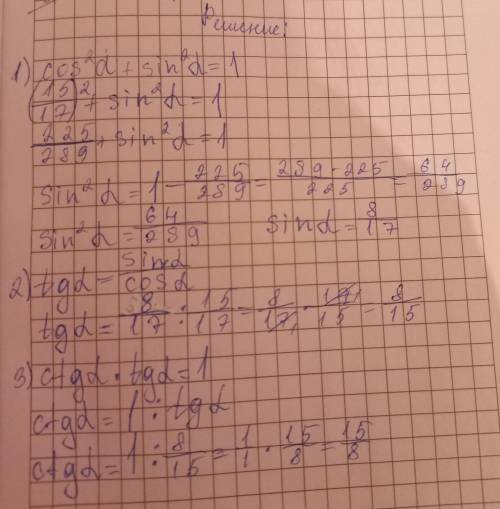 Решение:
1) cos²α + sin²α = 1
(15/17)² + sin²α = 1
225/289 + sin²α = 1
sin²α = 1 - 225/289 = 289 - 225/225 = 64/289
sin²α = 64/289 sinα = 8/17
2) tgα = sinα/cosα
tgα = 8/17 : 15/17 = 8/17₁ · 17¹/15 = 8/15
3) ctgα · tgα = 1
ctgα = 1 : tgα
ctgα = 1 : 8/15 = 1/1 · 15/8 = 15/8